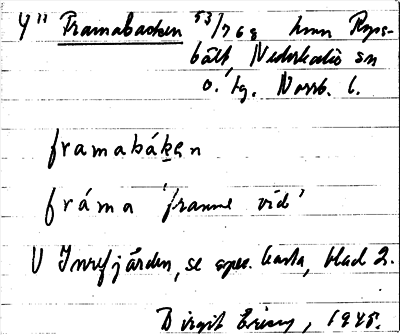 4" Framabacken 53/768 hmn Ryss-
bält, Nederkalix sn
o. tg. Norrb. l.
framabáken
fráma 'framme vid'
V Innefjärden, se spec. karta, blad 2.
Birgit 1945.